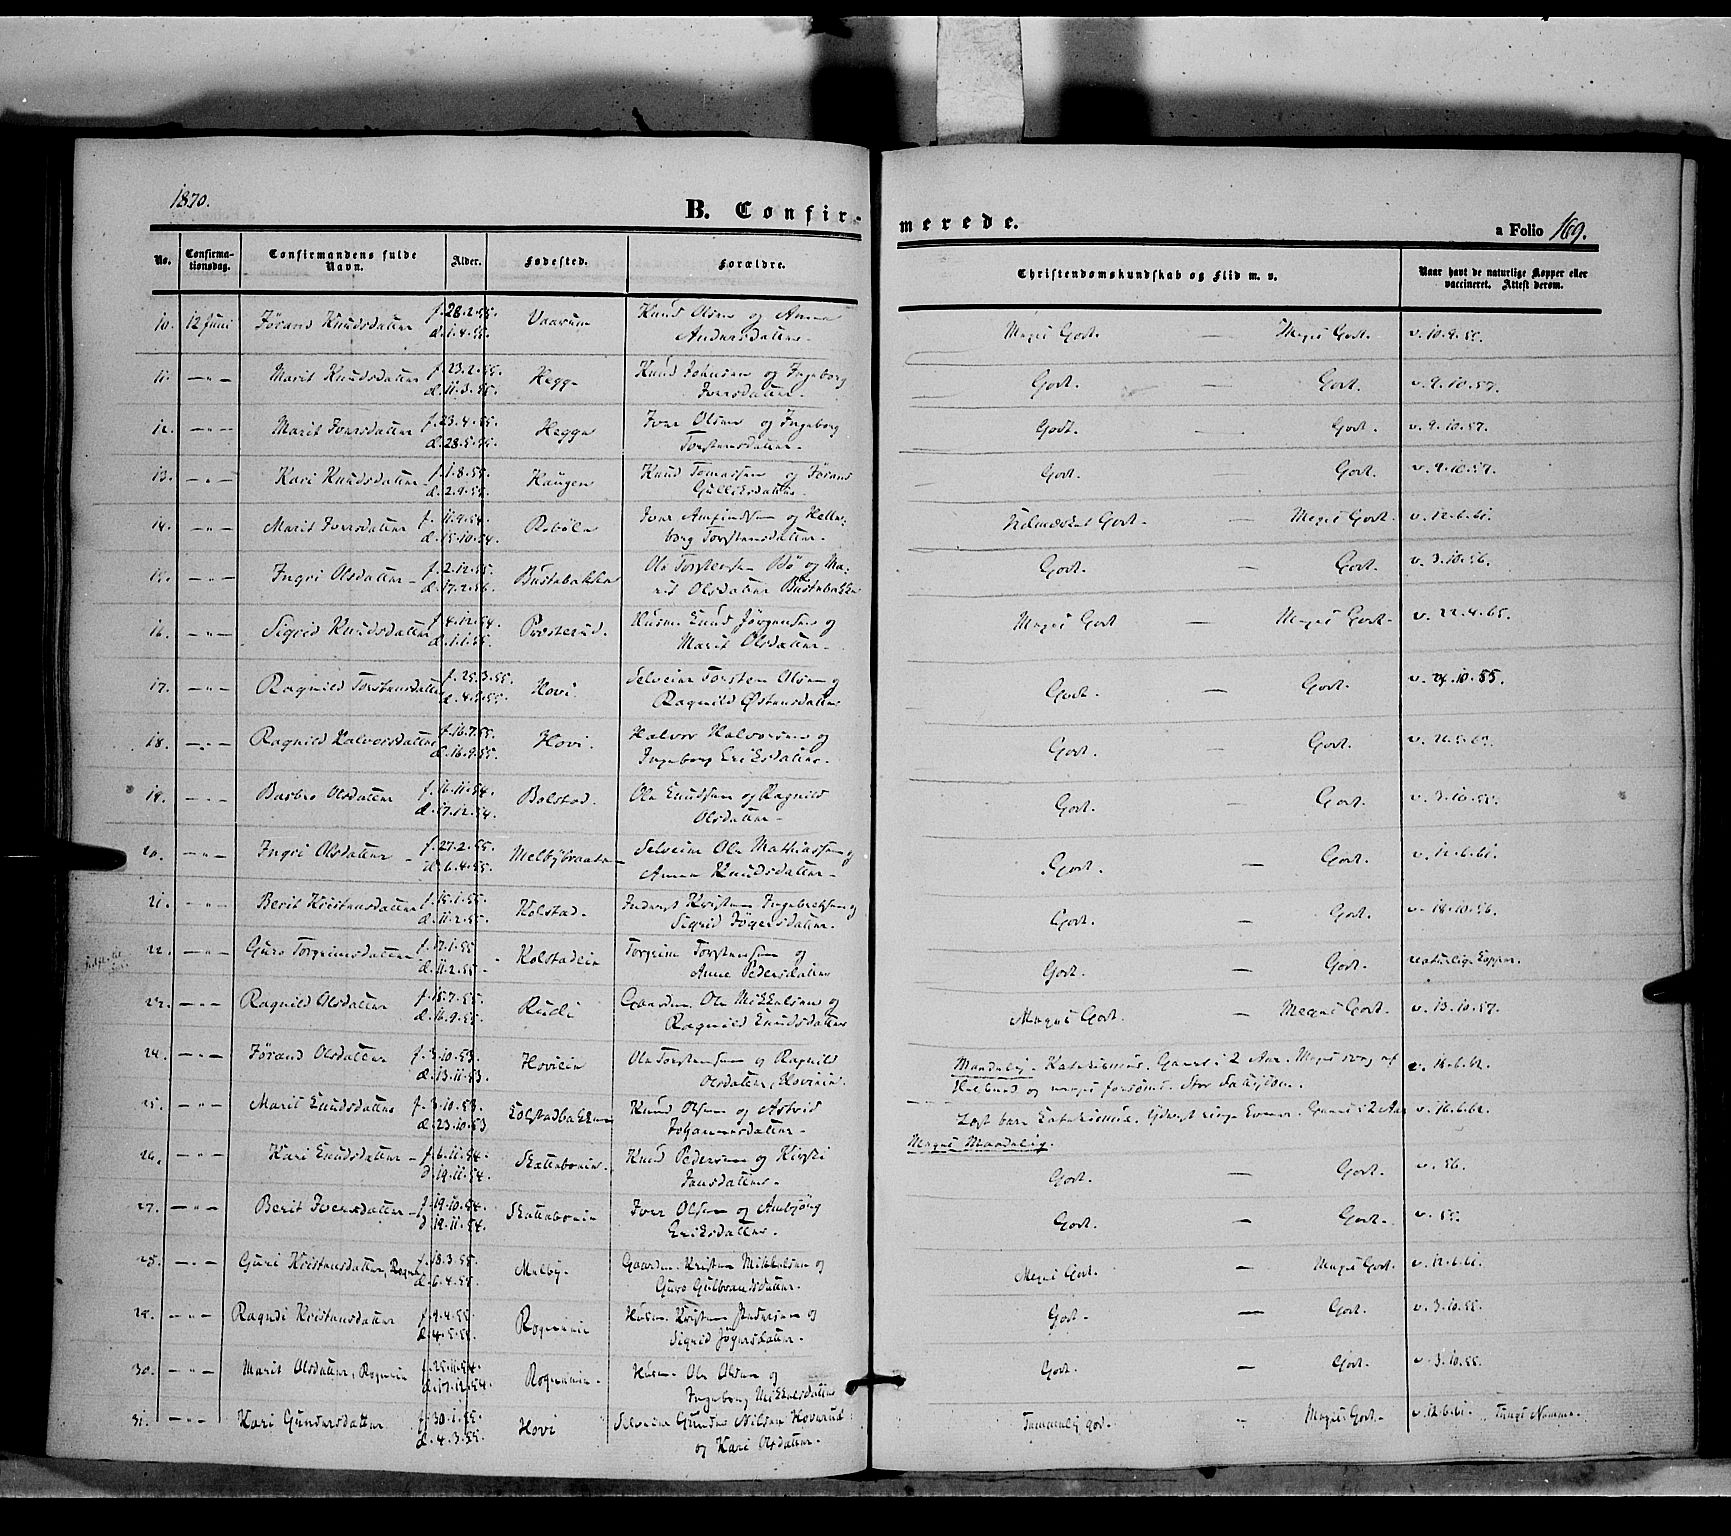 1870.
B. Confirmerede.
a Folio 169.
No. Confirmationsdag. Confirmandens fulde Navn. Alder. Fødested. Forældre. Christendomskundskab og Flid m. v. Naar havt de naturlige Kopper eller vaccineret. Attest derom.
10. 12 Juni Jørand Knudsdatter f. 28.2.55. Vaarum Knud Olsen og Anna Meget Godt. — Meget Godt. v. 10.9.55.
d. 1.4.55. Andersdatter.
11. — " — Marit Knudsdatter f. 23.2.55. Hegge Knud Johnsen og Ingeborg Godt. — Godt. v. 9.10.57.
d. 11.3.55. Iversdatter.
12. — " — Marit Iversdatter f. 23.4.55. Hegge Iver Olsen og Ingeborg Godt. — Godt. v. 9.10.57.
d. 28.5.55. Torstensdatter.
13. — " — Kari Knudsdatter f. 1.8.55. Haugen Knud Tomassen og Jørand Godt. — Godt. v. 9.10.57.
d. 2.9.55. Gulliksdatter.
14. — " — Marit Iversdatter f. 11.9.54. Robøle Iver Amundsen og Helle- Udmærket Godt. — Meget Godt. v. 12.6.61.
d. 15.10.54. borg Torstensdatter.
15. — " — Ingri Olsdatter f. 2.12.55. Bustebakke Ole Torstensen Bø og Ma- Godt. — Godt. v. 3.10.56.
d. 17.2.56. rit Olsdatter Bustebakke
16. — " — Sigrid Knudsdatter f. 4.12.54. Præsterud. Husm. Knud Jørgensen og Meget Godt — Meget Godt. v. 22.4.65.
d. 1.1.55. Marit Olsdatter.
17. — " — Ragnild Torstensdatter f. 25.3.55. Hovi. Selveier Torsten Olsen og Godt. — Godt. v. 10.55.
Ragnild Østensdatter
18. — " — Ragnild Halvorsdatter f. 16.7.55. Hovi. Halvor Halvorsen og Godt. — Godt.
d. 16.9.55. Ingeborg Eriksdatter.
19. — " — Barbro Olsdatter f. 16.11.54. Bolstad. Ole Knudsen og Ragnild Godt. — Godt. v. 3.10.55.
d. 17.12.54. Olsdatter.
20. — " — Ingri Olsdatter f. 27.2.55. Melbybraaten Selveier Ole Mathiassen og Godt. — Godt. v. 12.6.61.
d. 6.4.55. Anna Knudsdatter.
21. — " — Berit Kristensdatter f. 15.1.55. Kolstad. Inderst Kristen Ingebretsen og Godt. — Godt. v. 18.10.56.
d. 11.2.55. Sigrid Jøgersdatter.
22. — " — Guro Torgeimsdatter f. 17.1.55. Kolstadeie Torgeim Torstensen og Godt. — Godt. naturlige Kopper.
d. 11.2.55. Anne Pedersdatter
23. — " — Ragnild Olsdatter f. 15.7.55. Rudi Gaardm. Ole Mikkelsen og Meget Godt. — Meget Godt. v. 13.10.57.
d. 16.9.55. Ragnild Knudsdatter
24. — " — Jørand Olsdatter f. 3.10.53. Hovieie Ole Torstensen og Ragnild Maadelig. Katekismus. Gaaet i 2 Aar. Meget svag af v. 12.6.62.
d. 13.11.53. Olsdatter, Hovieie. Helbred og meget forsømt. Stor Fattigdom.
25. — " — Marit Knudsdatter f. 3.10.53. Kolstadbakken Knud Olsen og Astrid Læst bare Katekismus. Yderst ringe Evner. Gaaet i 2 Aar v. 12.6.62.
d. 23.10.53 Johannesdatter. Meget Maadelig.
26. — " — Kari Knudsdatter f. 6.11.54. Skattebueie. Knud Pedersen og Kirsti Godt. — Godt. v. 56.
d. 19.11.54. Jansdatter.
27. — " — Berit Iversdatter f. 19.10.54. Skattebueie Iver Olsen og Ambjørg Godt. — Godt. v. 55.
d. 19.11.54. Eriksdatter.
28. — " — Guri Kristensdatter, f. 18.3.55. Melby. Gaardm. Kristen Mikkelsen og Meget Godt. — Meget Godt. v. 12.6.61.
d. 6.4.55. Guro Gulbrandsdatter.
29. — " — Ragndi Kristensdatter f. 9.4.55. Rogneeie Husm. Kristen Andersen og Godt. — Godt. v. 3.10.55.
d. 4.5.55. Sigrid Jøgersdatter.
30. — " — Marit Olsdatter, Rogneeie f. 25.11.54. Rogneeie. Husm. Ole Olsen og Godt. — Godt. v. 3.10.55.
d. 17.12.54. Ingeborg Mikkelsdatter
31. — " — Kari Gundersdatter f. 30.1.55. Hovi Selveier Gunder Nilsen Hoverud Temmelig god. — Meget Godt. v. 12.6.61. Tungt Nemme.
d. 4.3.55. og Kari Olsdatter.